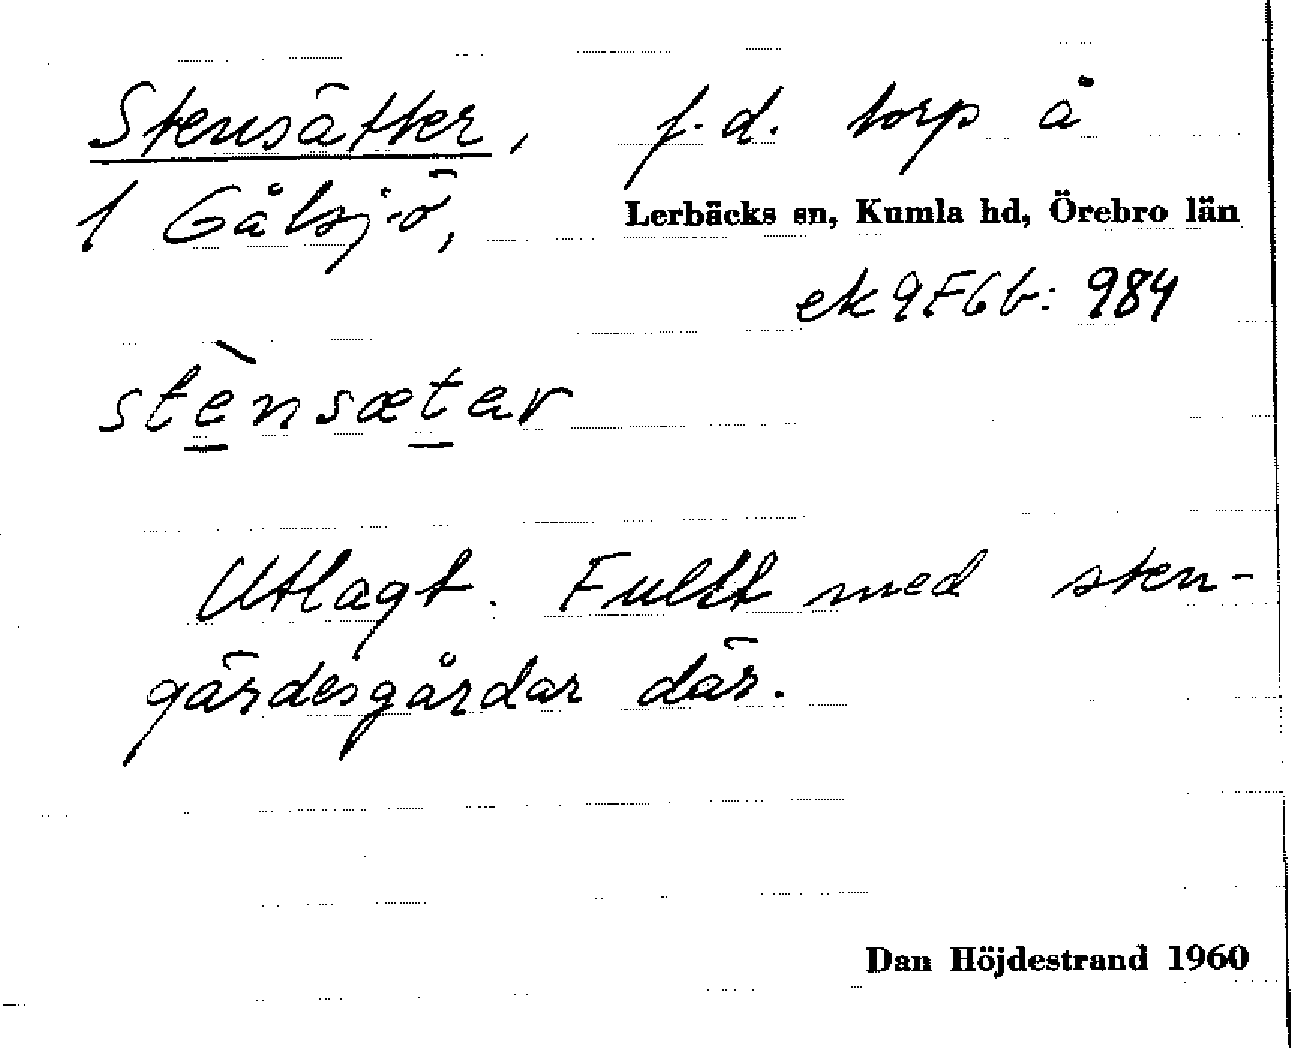 Stensätter, f.d. torp å
1 Gålsjö, Lerbäcks sn, Kumla hd, Örebro län
ek 9F6b: 984
stènsætar
Utlagt. Fullt med sten-
gärdesgårdar där.
Dan Höjdestrand 1960